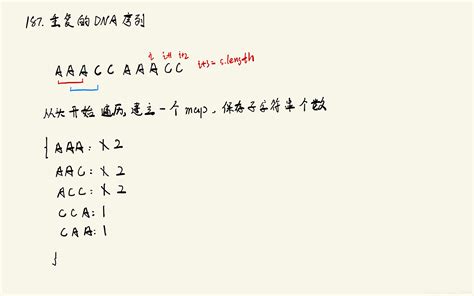 187. 重复的DNA序列
i i+1 i+2
AAACCAAACC i+3 = s.length
从头开始遍历,建立一个map,保存子字符串个数
{ AAA: 1 2
AAC: 1 2
ACC: 1 2
CCA: 1
CAA: 1
}